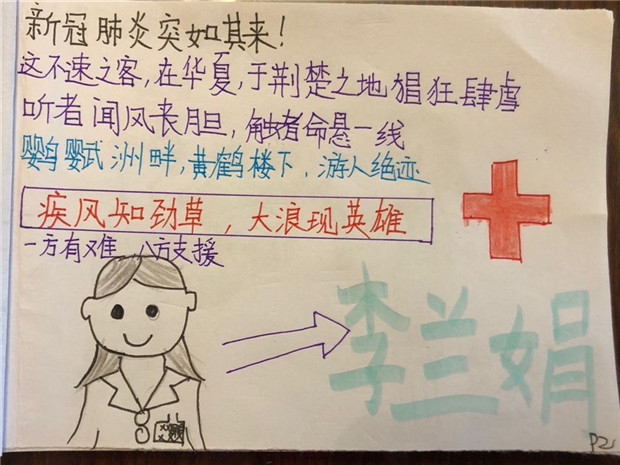 新冠肺炎突如其来!
这不速之客,在华夏,于荆楚之地猖狂肆虐
听者闻风丧胆,触者命悬一线
鹦鹉洲畔,黄鹤楼下,游人绝迹
疾风知劲草,大浪现英雄
一方有难 八方支援
李兰娟
P2